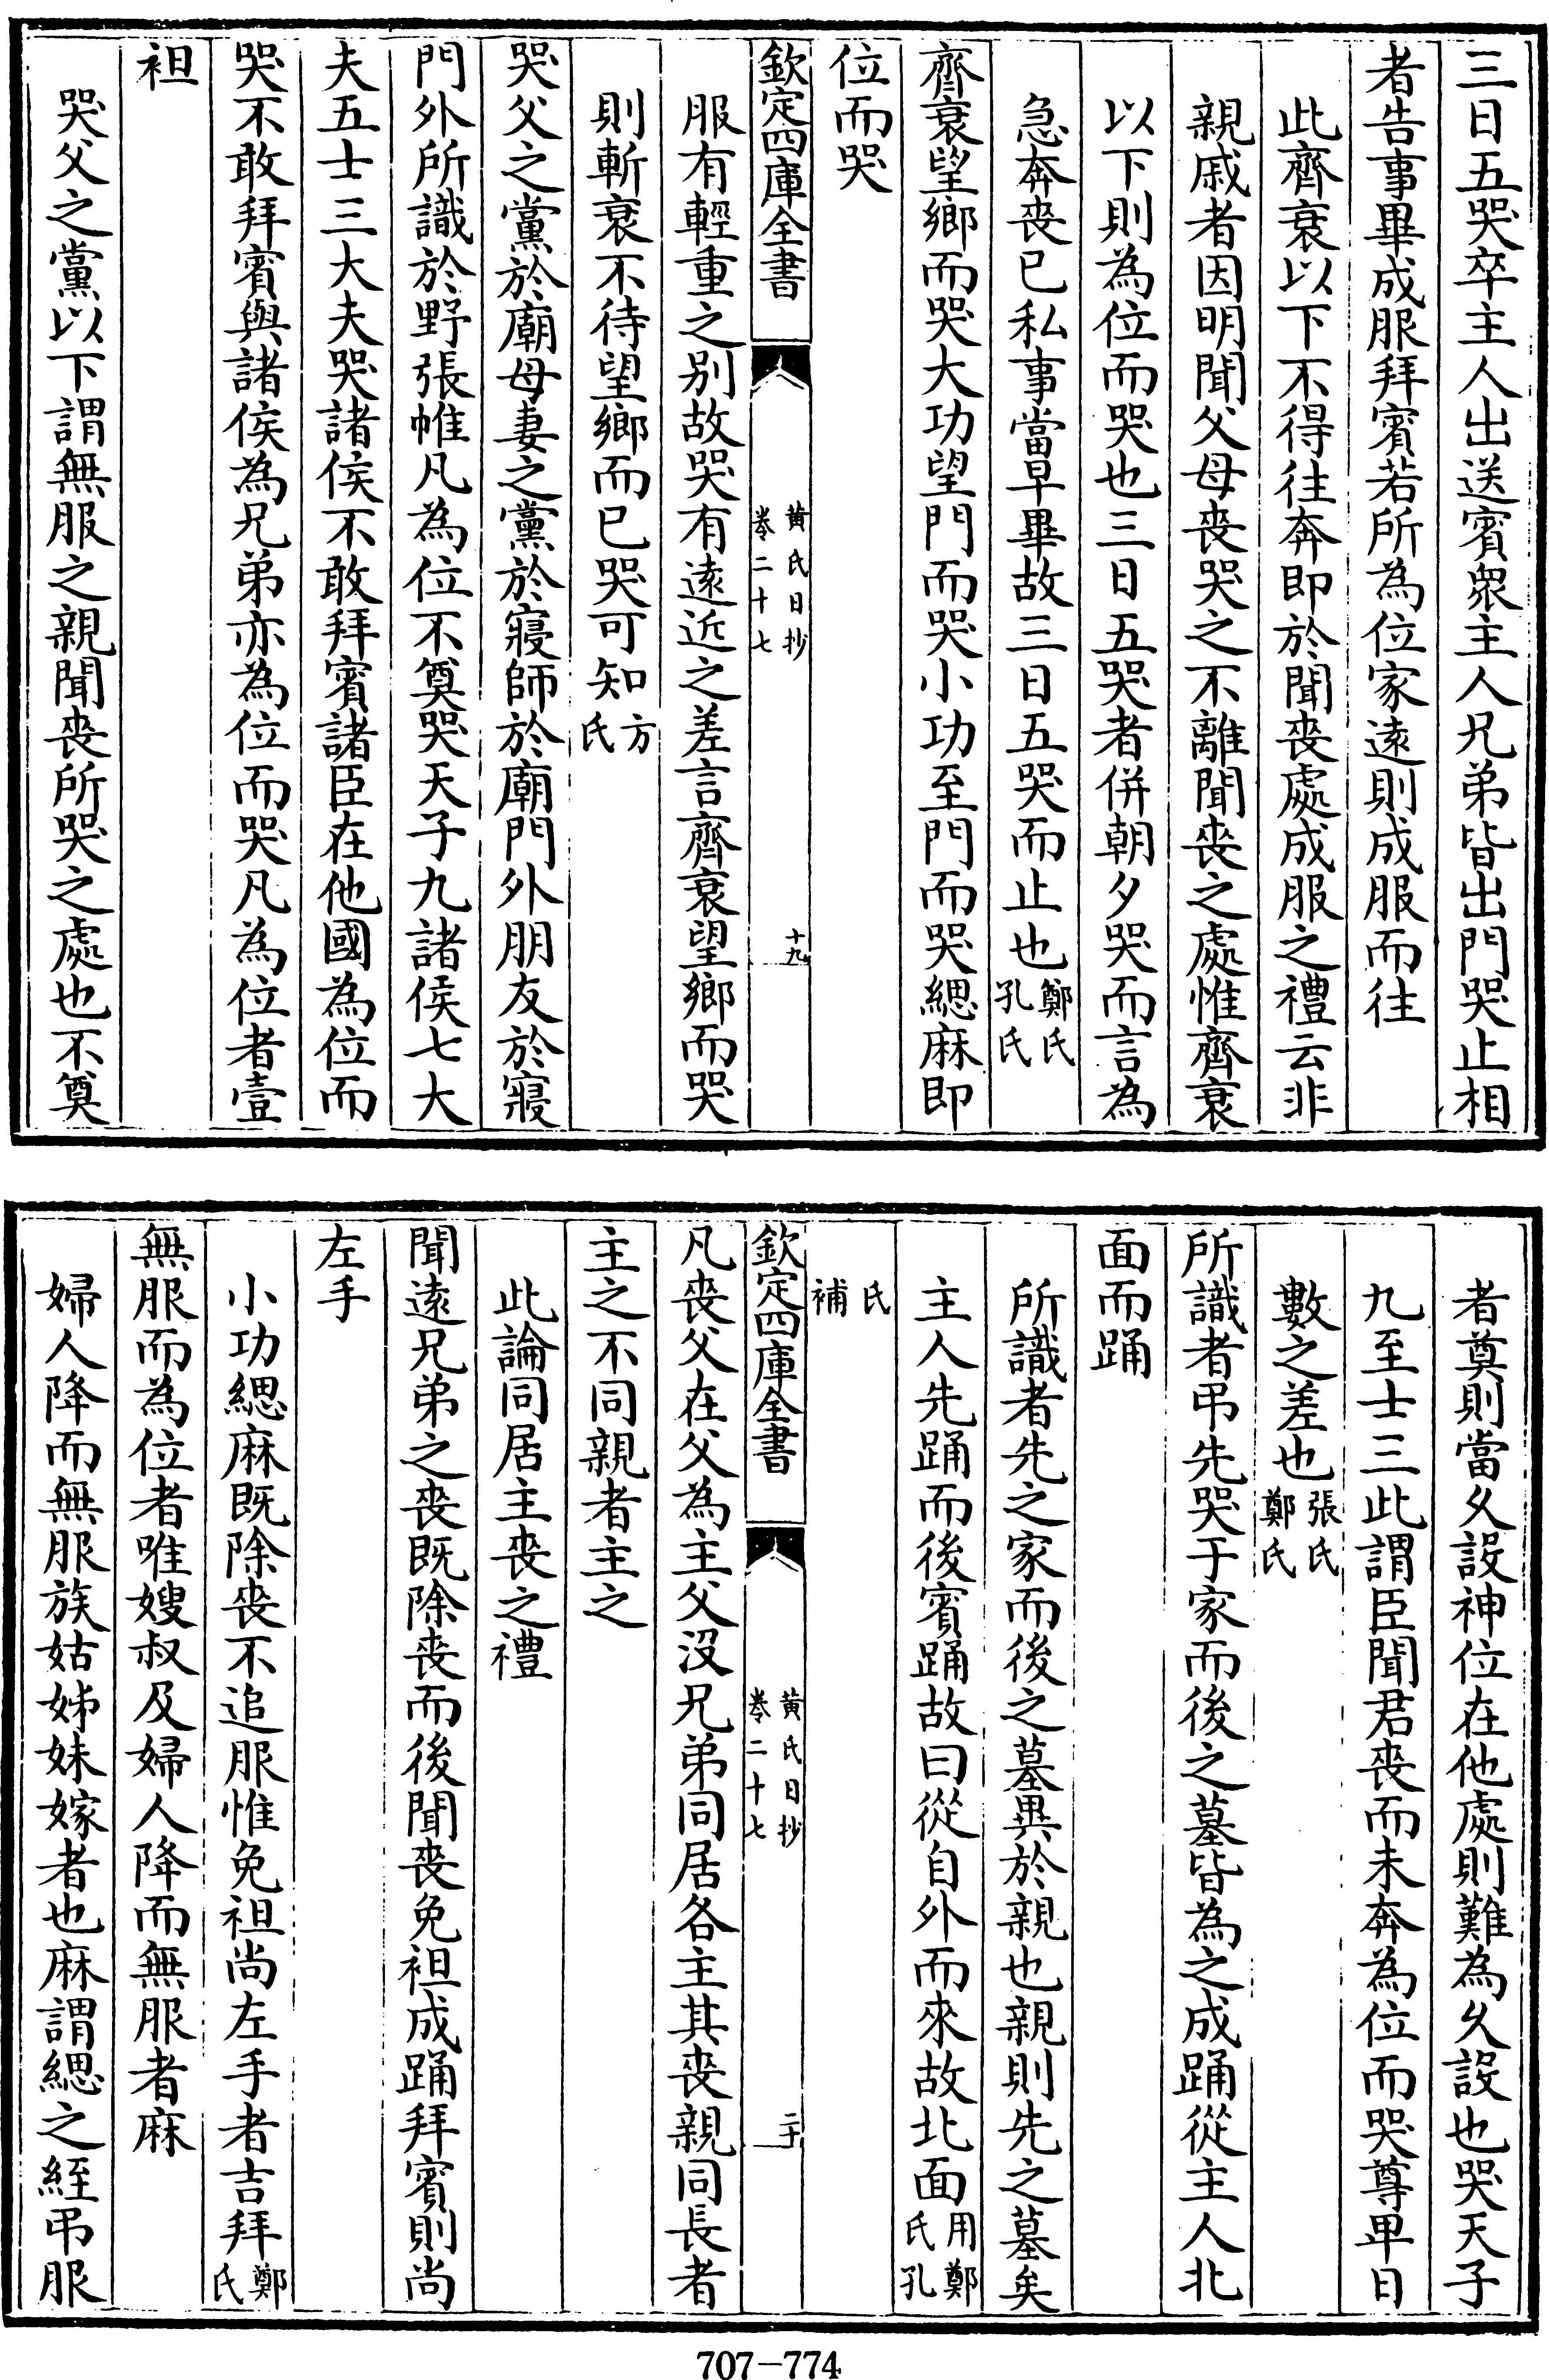 三日五哭卒主人出送賓衆主人兄弟皆出門哭止相
者告事畢成服拜賓若所為位家遠則成服而往
此齊衰以下不得往奔即於聞喪處成服之禮云非
親戚者因明聞父母喪哭之不離聞喪之處惟齊衰
以下則為位而哭也三日五哭者併朝夕哭而言為
急奔喪已私事當早畢故三日五哭而止也鄭氏孔氏
齊衰望鄉而哭大功望門而哭小功至門而哭緦麻即
位而哭
欽定四庫全書 黃氏日抄 卷二十七 十九
服有輕重之别故哭有遠近之差言齊衰望鄉而哭
則斬衰不待望鄉而已哭可知方氏
哭父之黨於廟母妻之黨於寢師於廟門外朋友於寢
門外所識於野張帷凡為位不奠哭天子九諸侯七大
夫五士三大夫哭諸侯不敢拜賓諸臣在他國為位而
哭不敢拜賓與諸侯為兄弟亦為位而哭凡為位者壹
袒
哭父之黨以下謂無服之親聞喪所哭之處也不奠
者奠則當久設神位在他處則難為久設也哭天子
九至士三此謂臣聞君喪而未奔為位而哭尊卑日
數之差也張氏鄭氏
所識者弔先哭于家而後之墓皆為之成踊從主人北
面而踊
所識者先之家而後之墓異於親也親則先之墓矣
主人先踊而後賓踊故曰從自外而來故北面用鄭氏孔
氏補
欽定四庫全書 黃氏日抄 卷二十七 二十
凡喪父在父為主父沒兄弟同居各主其喪親同長者
主之不同親者主之
此論同居主喪之禮
聞遠兄弟之喪既除喪而後聞喪免袒成踊拜賓則尚
左手
小功緦麻既除喪不追服惟免袒尚左手者吉拜鄭氏
無服而為位者唯嫂叔及婦人降而無服者麻
婦人降而無服族姑姊妹嫁者也麻謂緦之絰弔服
707-774